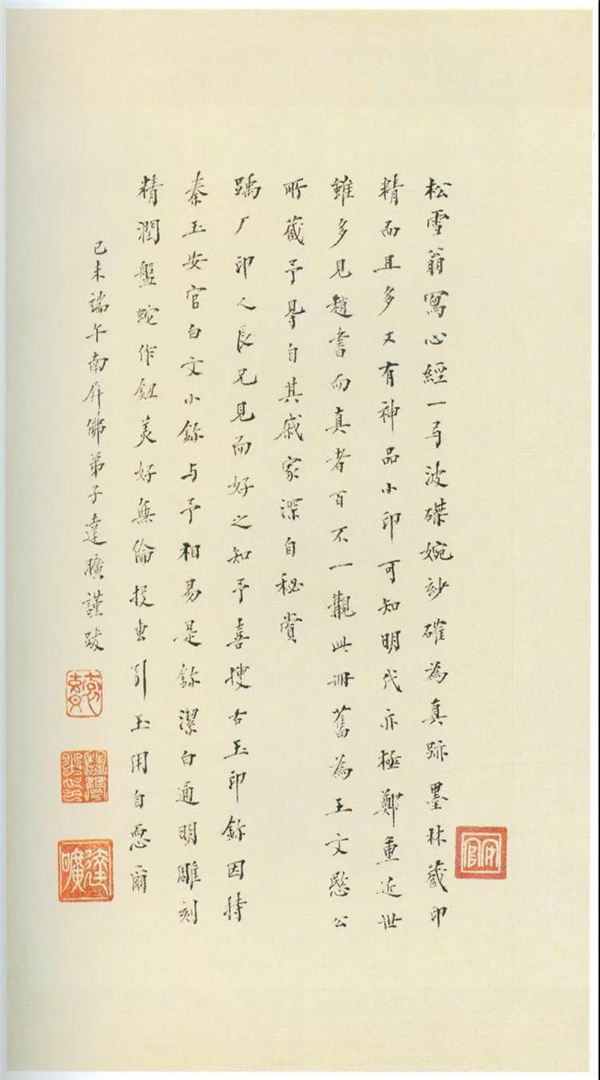 松雪翁寫心經一弓波磔婉妙確為真跡墨林藏印
精而且多又有神品小印可知明代亦極鄭重近世
雖多見趙書而真者百不一覯此冊舊為王文愍公
所藏予得自其戚家深自秘賞
踽厂印人長兄見而好之知予喜搜古玉印鉨因持
秦玉安官白文小鉨与予相易是鉨潔白通明雕刻
精潤盤蛇作鈕美好無倫投引玉用自恧爾
己未端午南屏佛弟子達曠謹跋
安官
達曠